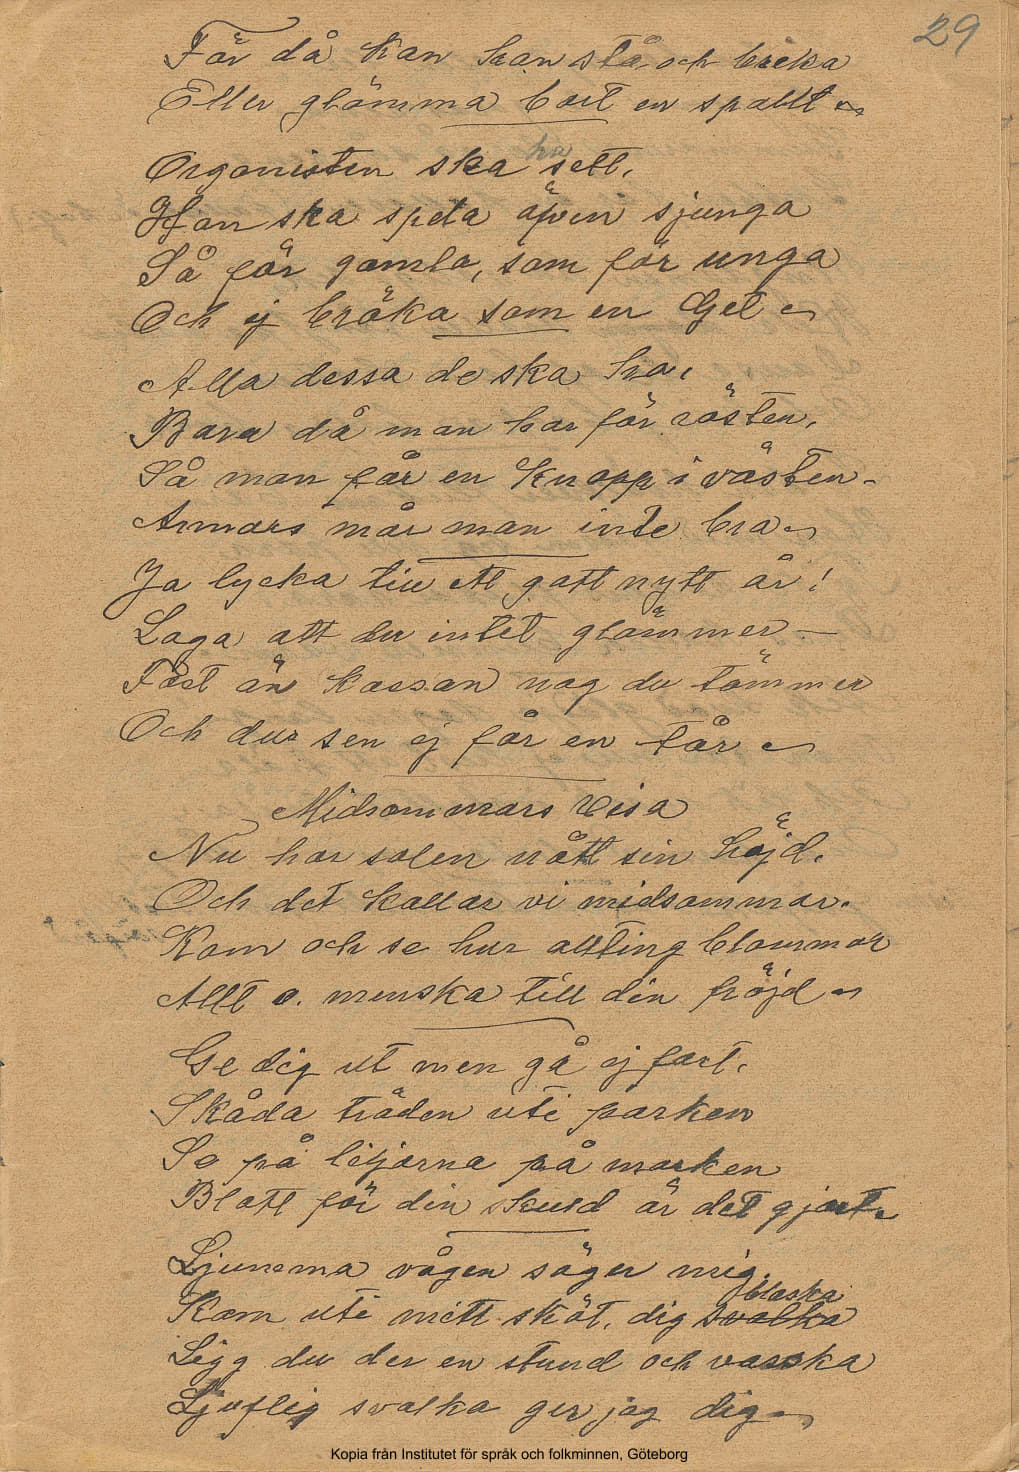 29
För då kan han stå och bräka
Eller glömma bort en spallt
Organisten ska ha sett,
Han ska spela äfven sjunga
Så för gamla, som för unga
Och ej bräka som en Get
Alla dessa de ska ha,
Bara då man har för rösten,
Så man får en knapp i västen -
Annars mår man inte bra
Ja lycka till ett gott nytt år!
Laga att du intet glömmer -
Fast än kassan nog du tömmer
Och du sen ej får en tår
Midsommars Visa
Nu har solen nått sin höjd.
Och det kallar vi midsommar.
Kom och se hur allting blommar
Allt o. menska till din fröjd
Ge dig ut men gå ej fort.
Skåda träden uti parken
Se på liljorna på marken
Blott för din skuld är det gjort.
Ljumma vågen säger mig.
Kom uti mitt sköt, dig svalka blaska
Ligg du der en stund och vaska
Ljuflig svalka ger jag dig
Kopia från Institutet för språk och folkminnen, Göteborg